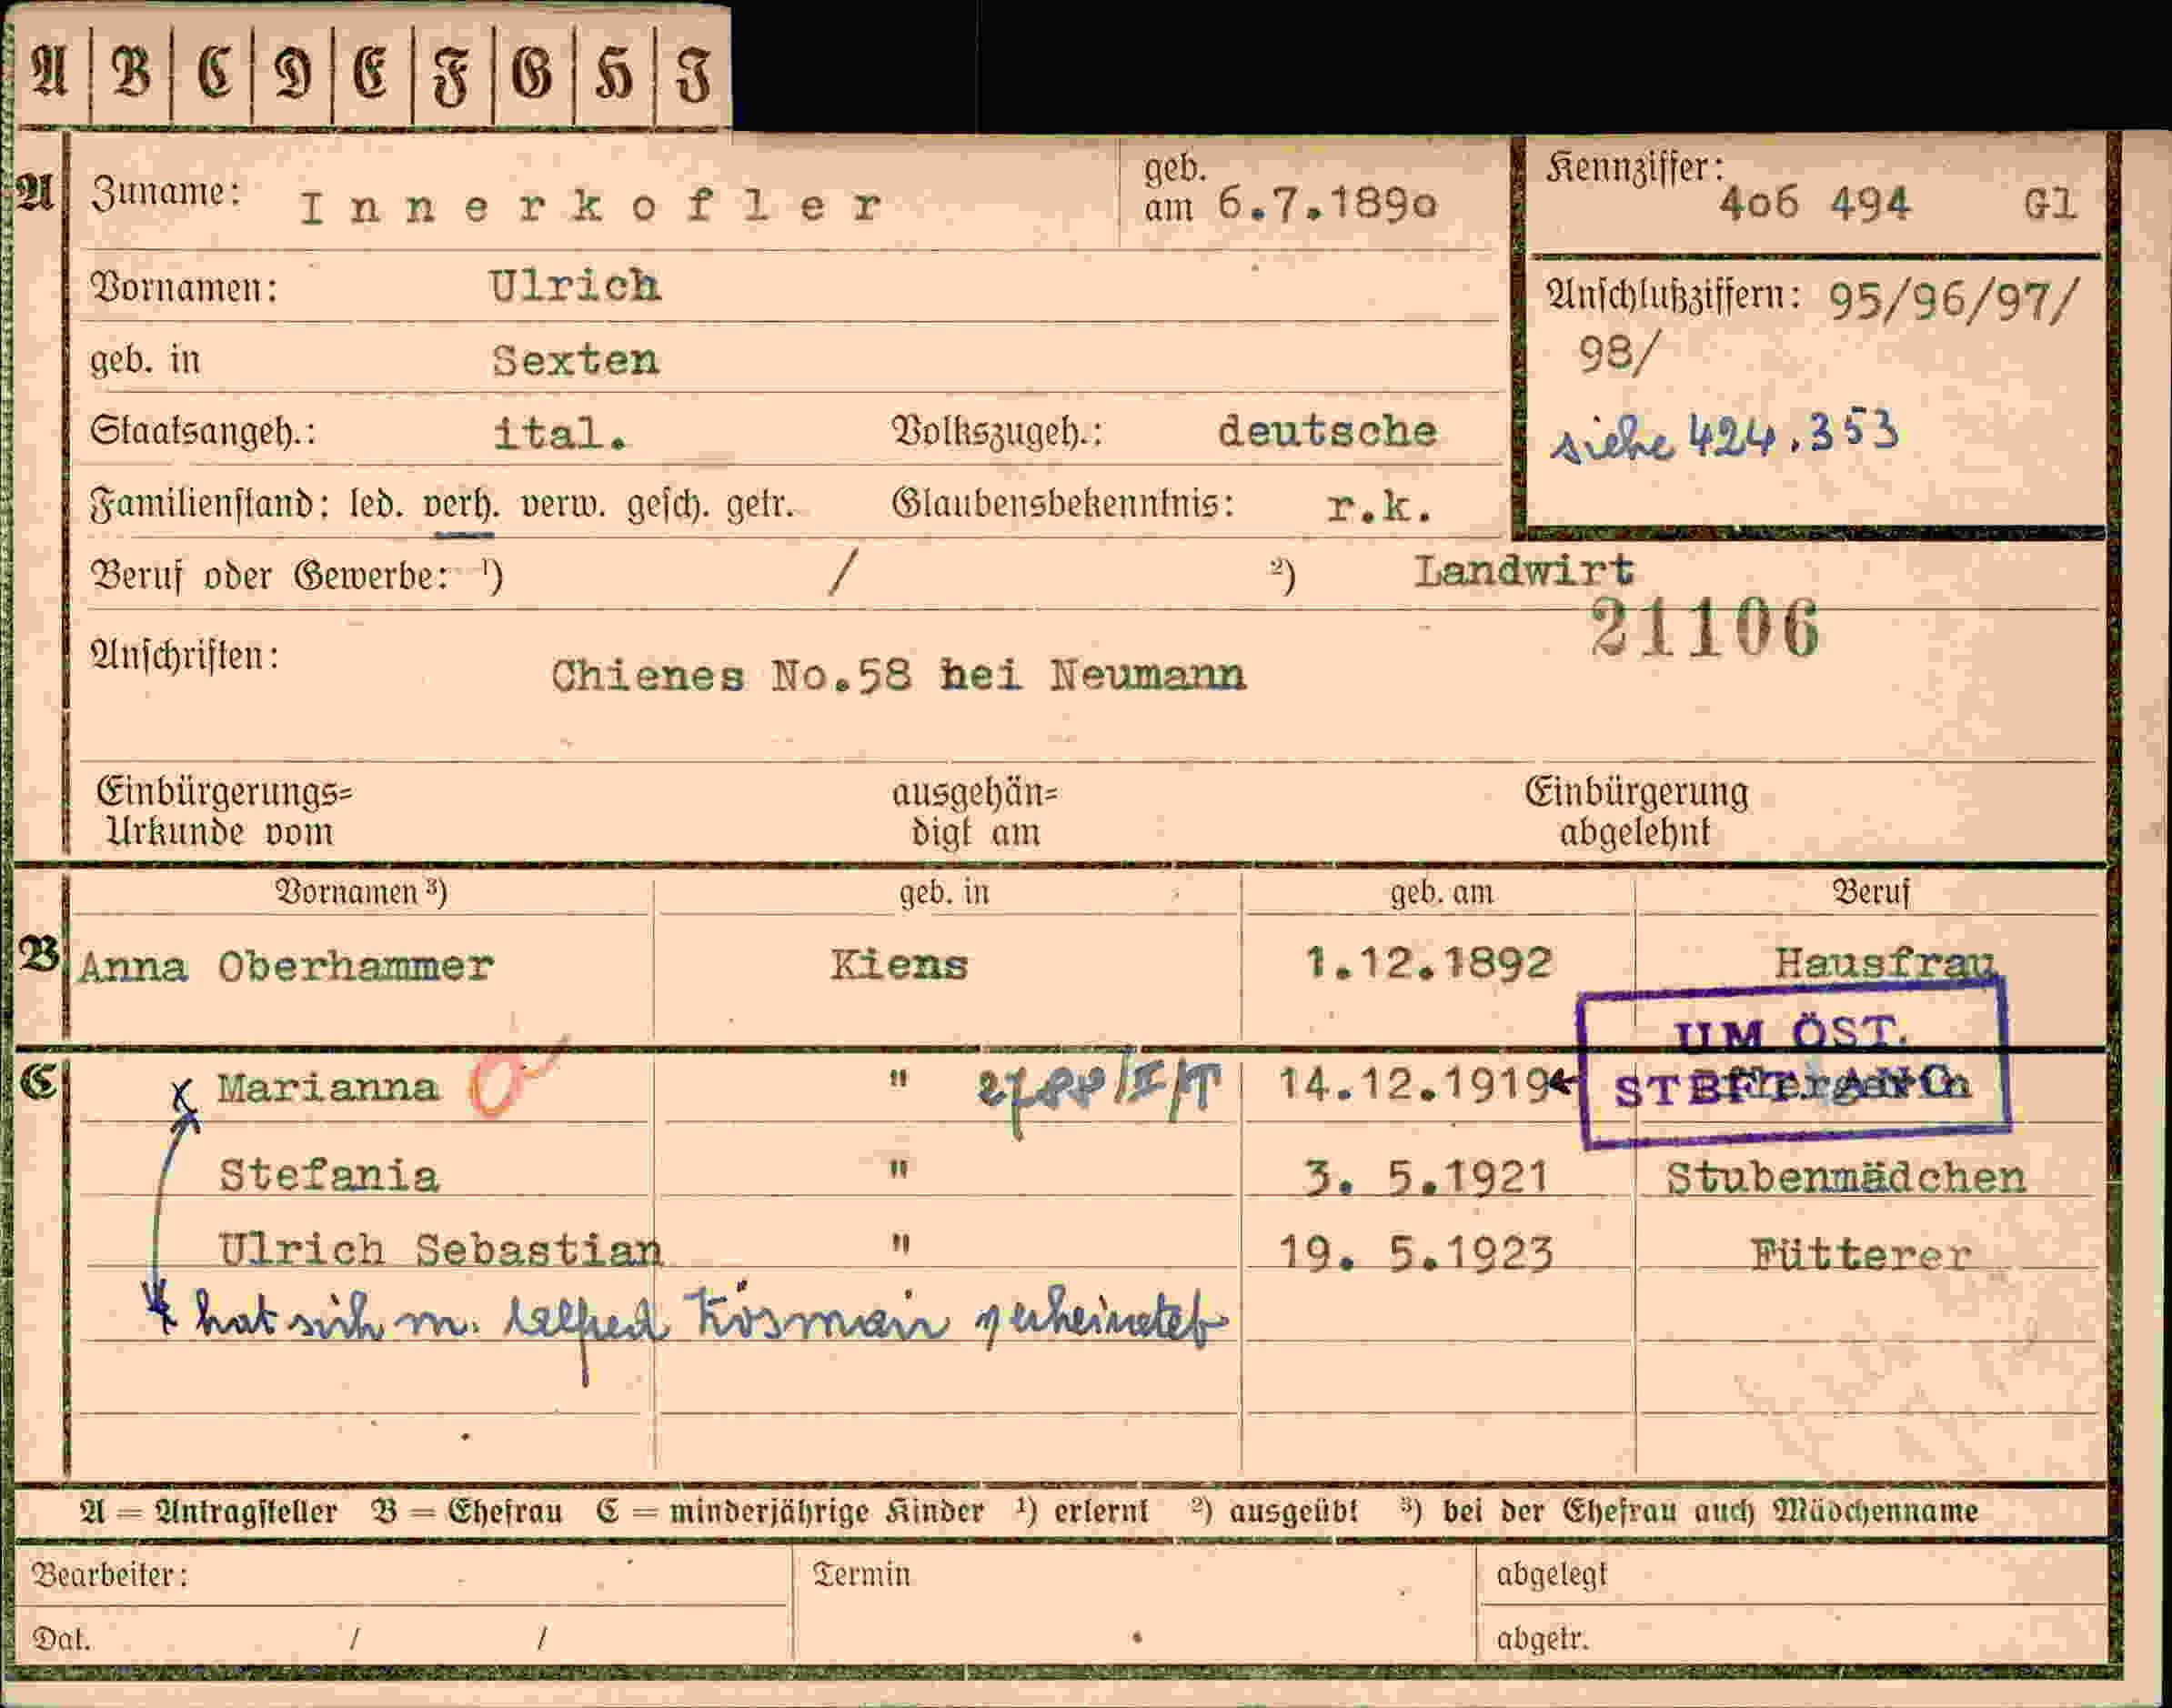 A B C D E F G H I
A Zuname: Innerkofler geb. am 6.7.1890 Kennziffer: 406 494 Gl
Vornamen: Ulrich Anschlußziffern: 95/96/97/
98/
geb. in Sexten
Staatsangeh.: ital. Volkszugeh.: deutsche siehe 424.353
Familienstand: led. verh. verw. gesch. getr. Glaubensbekenntnis: r.k.
Beruf oder Gewerbe: ¹) / ²) Landwirt
21106
Anschriften: Chienes No.58 bei Neumann
Einbürgerungs= ausgehän= Einbürgerung
Urkunde vom digt am abgelehnt
Vornamen ³) geb. in geb. am Beruf
B Anna Oberhammer Kiens 1.12.1892 Hausfrau
UM ÖST.
C x Marianna " 14.12.1919
Stefania " 3. 5.1921 Stubenmädchen
Ulrich Sebastian " 19. 5.1923 Fütterer
hat sich m. verheiratet
A = Antragsteller B = Ehefrau C = minderjährige Kinder ¹) erlernt ²) ausgeübt ³) bei der Ehefrau auch Mädchenname
Bearbeiter: Termin abgelegt
Dat. / / abgetr.